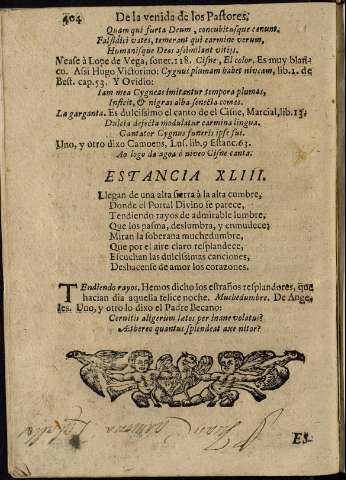 404 De la venida de los Pastores,
Quam qui furta Deum, concubitusque canunt.
Falsidici vates, temerant qui carmine verum,
Humanisque Deos assimilant vitijs.
Vease à Lope de Vega, sonet. 118. Cisne, El color. Es muy blan-
co. Assi Hugo Victorino: Cygnus plumam habet niveam, lib. 1. de
Best. cap. 53. Y Ovidio:
Iam mea Cygneas imitantur tempora plumas,
Inficit, & nigras alba senecta comas.
La garganta. Es dulcissimo el canto de el Cisne, Marcial, lib. 13.
Dulcia defecta modulatur carmina lingua.
Cantator Cygnus funeris ipse sui.
Uno, y otro dixo Camoens, Lus. lib. 9 Estanc. 63.
Ao logo da agoa o niveo Cisne canta.
ESTANCIA XLIII.
Llegan de una alta sierra à la alta cumbre,
Donde el Portal Divino se parece,
Tendiendo rayos de admirable lumbre,
Que los pasma, deslumbra, y enmudece;
Miran la soberana muchedumbre,
Que por el aire claro resplandece,
Escuchan las dulcissimas canciones,
Deshacense de amor los corazones.
Tendiendo rayos. Hemos dicho los estraños resplandores, que
hacian dia aquella felice noche. Muchedumbre. De Ange-
les. Uno, y otro lo dixo el Padre Becano:
Cernitis aligerum latos per inane volatus?
Æthereo quantus splendeat axe nitor?
ES-